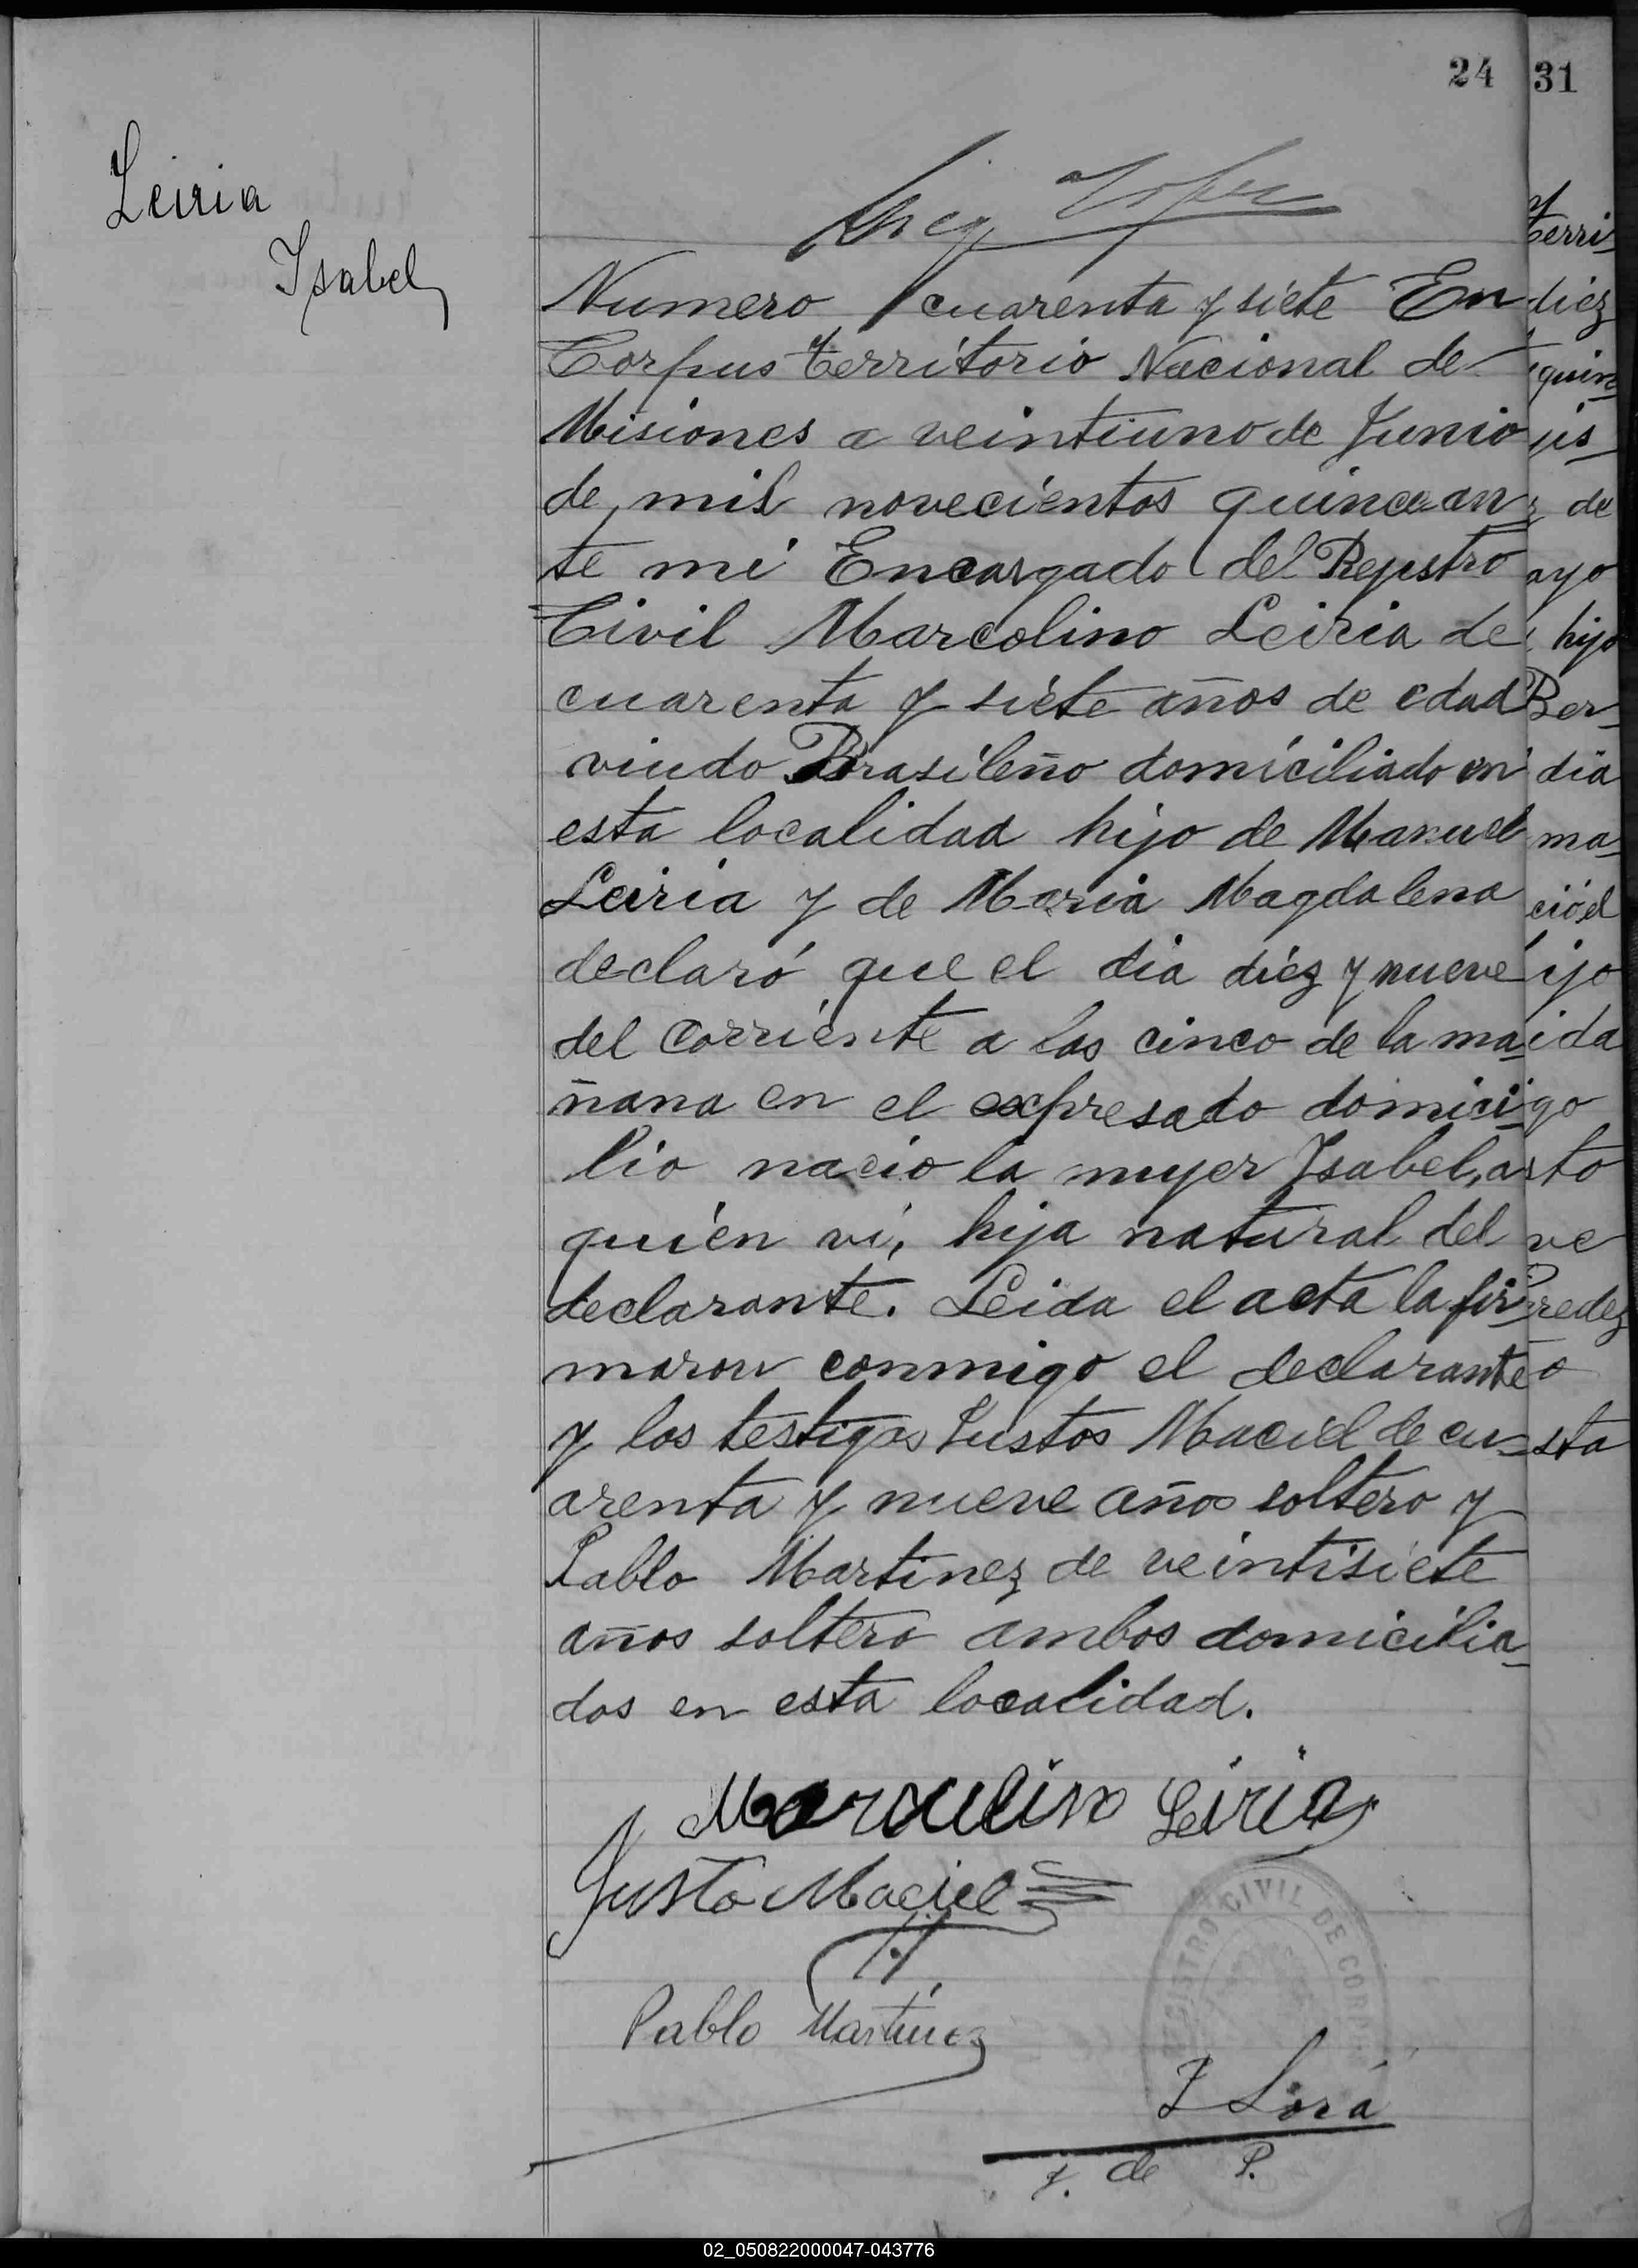 24
31
Leiria
Isabel
Numero cuarenta y siete En
Corpus territorio Nacional de
Misiones a veintiuno de Junio
de mil novecientos quince an
te mi Encargado del Rejistro
Civil Marcolino Leiria de
cuarenta y siete años de edad
viudo Brasileño domiciliado en
esta localidad hijo de Manuel
Leiria y de Maria Magdalena
declaró que el dia diez y nueve
del corriente a las cinco de la ma-
ñana en el expresado domici-
lio nacio la mujer Isabel, a
quien vi, hija natural del
declarante. Leida el acta la fir-
maron conmigo el declarante
y los testigos Justos Maciel de cu-
arenta y nueve años soltero y
Pablo Martinez de veintisiete
años soltero ambos domicilia-
dos en esta localidad.
Marculino Leiria
Justo Maciel
Pablo Martinez
REGISTRO CIVIL DE CORPUS
J Lorá
J. de P.
terri-
diez
quin
us
de
ayo
hijo
Ber-
dia
ma-
ció el
ijo
ida
go
sto
ve
redez
o
sta
02_050822000047-043776